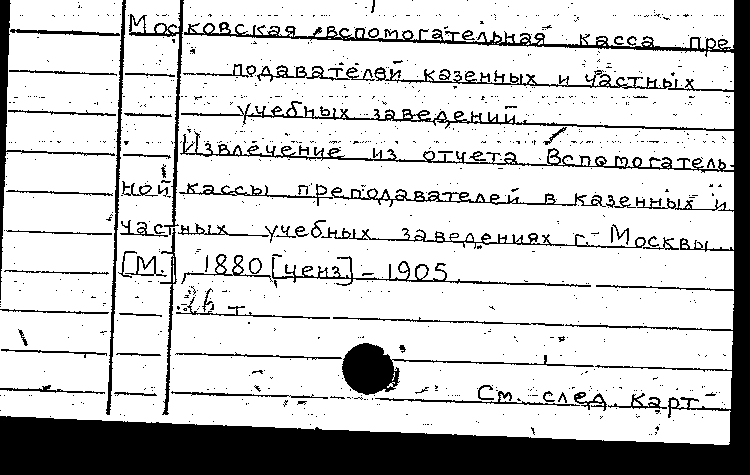 Московская вспомогательная касса пре-
подавателей казенных и частных
учебных заведений.
Извлечение из отчета Вспомогатель-
ной кассы преподавателей в казенных и
частных учебных заведениях г. Москвы...
[М.], 1880 [ценз.] - 1905.
26 т.
См. след. карт.